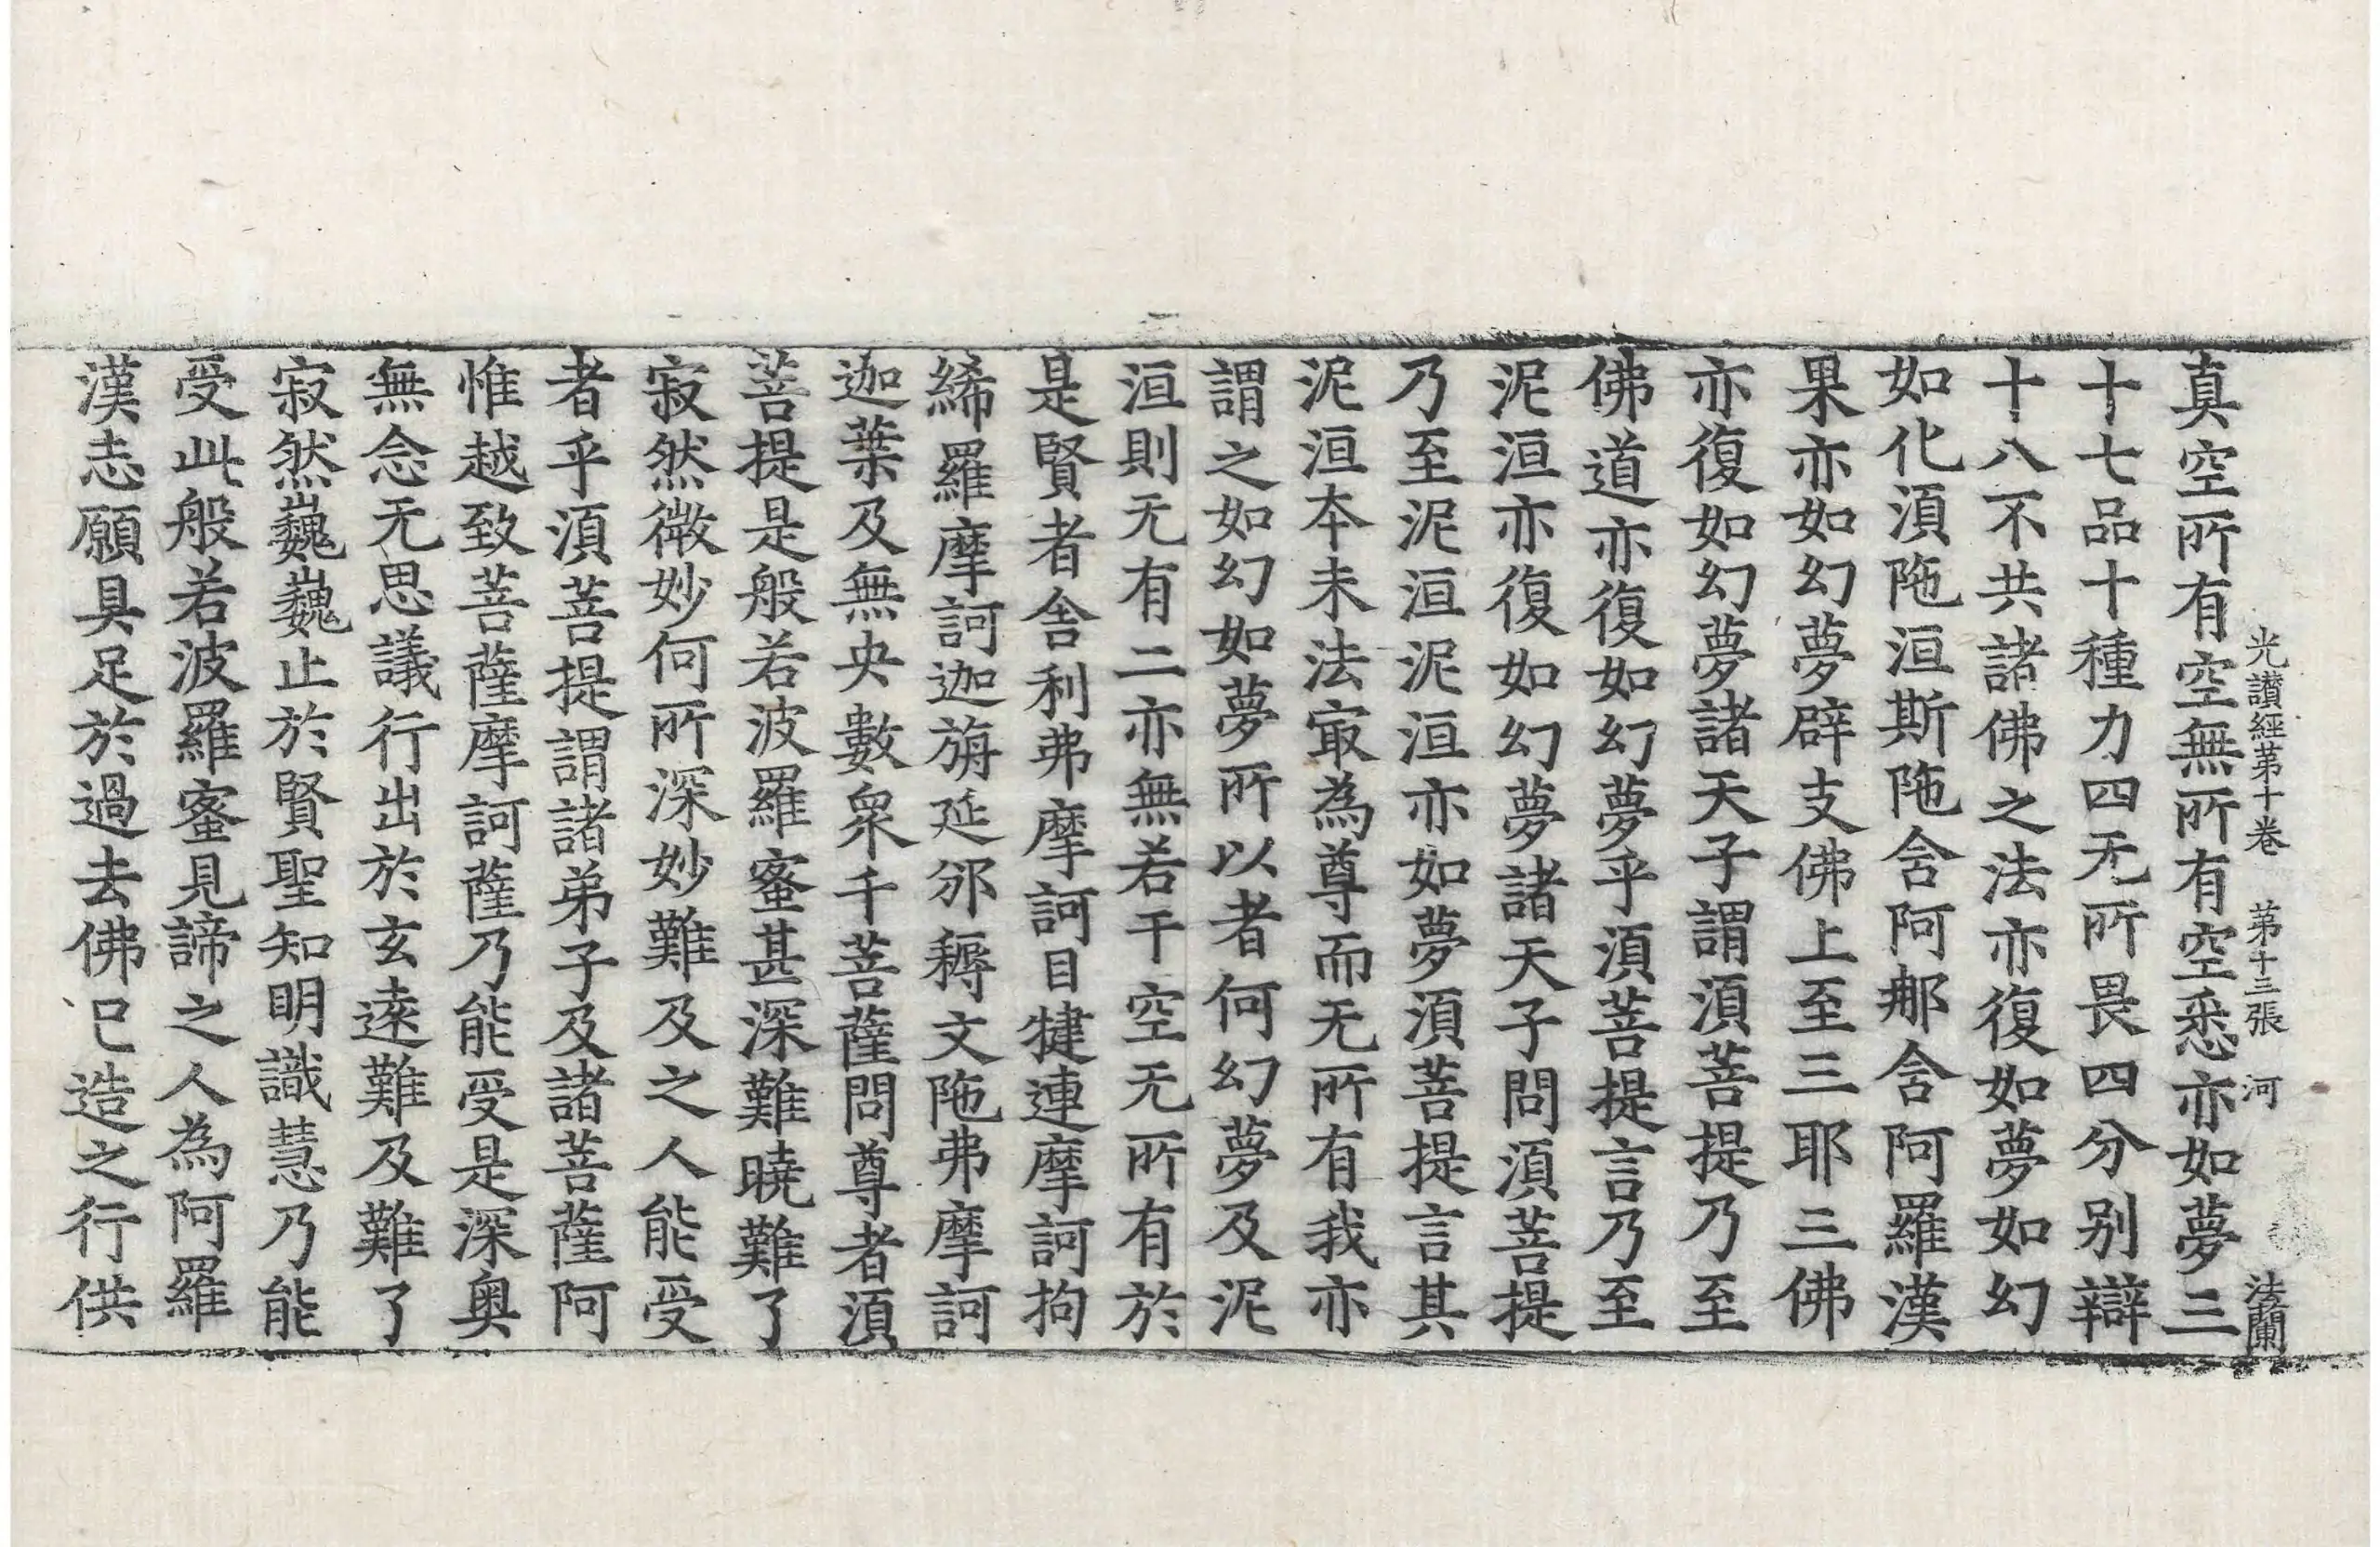 光讃經苐十卷　苐十三張　河　法蘭
真空所有空無所有空悉亦如夢三
十七品十種力四无所畏四分别辯
十八不共諸佛之法亦復如夢如幻
如化湏陁洹斯陁含阿那含阿羅漢
果亦如幻夢辟支佛上至三耶三佛
亦復如幻夢諸天子謂湏菩提乃至
佛道亦復如幻夢乎湏菩提言乃至
泥洹亦復如幻夢諸天子問湏菩提
乃至泥洹泥洹亦如夢湏菩提言其
泥洹夲末法㝡為尊而无所有我亦
謂之如幻如夢所以者何幻夢及泥
洹則无有二亦無若干空无所有於
是賢者舍利弗摩訶目揵連摩訶拘
絺羅摩訶迦旃延邠耨文陁弗摩訶
迦葉及無央數衆千菩薩問尊者湏
菩提是般若波羅蜜甚深難曉難了
寂然微妙何所深妙難及之人能受
者乎湏菩提謂諸弟子及諸菩薩阿
惟越致菩薩摩訶薩乃能受是深奥
無念无思議行出於玄逺難及難了
寂然巍巍止於賢聖知明識慧乃能
受此般若波羅蜜見諦之人為阿羅
漢志願具足於過去佛已造之行供